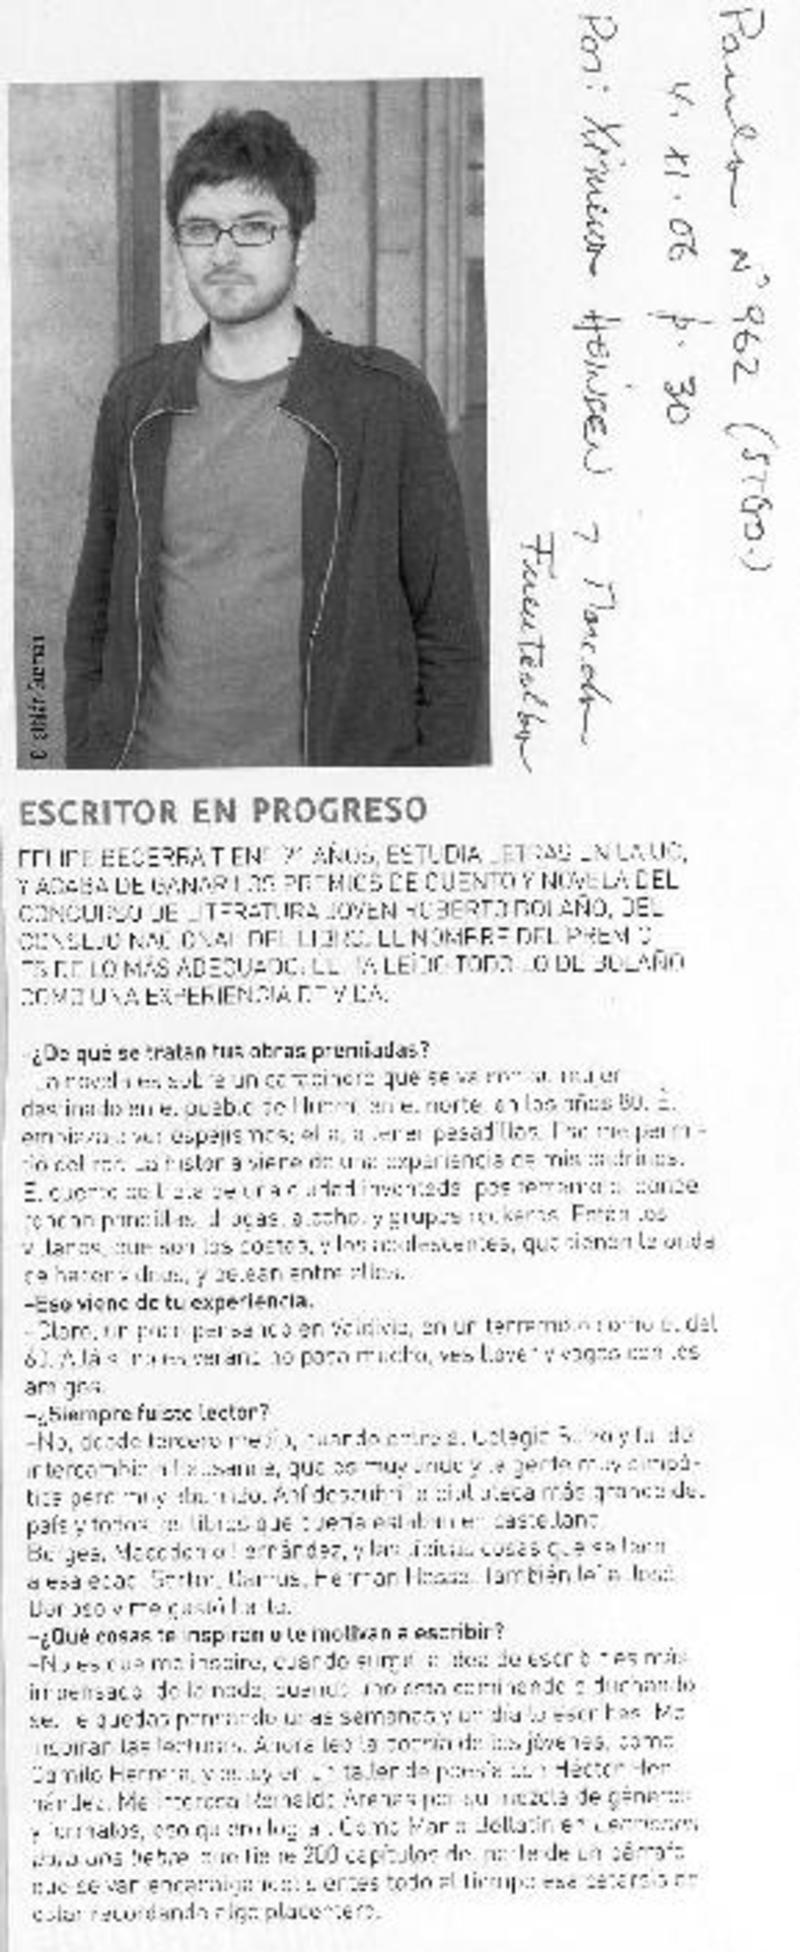 Paula N° 962 (STGO.)
4. XI. 06 p. 30
Por: Ximena HEINSEN y Marcela
Fuentealba
ESCRITOR EN PROGRESO
FELIPE BECERRA TIENE AÑOS, ESTUDIA LETRAS EN LA UC,
Y ACABA DE GANAR LOS PREMIOS DE CUENTO Y NOVELA DEL
CONCURSO DE LITERATURA JOVEN ROBERTO BOLAÑO, DEL
CONSEJO NACIONAL DEL LIBRO. EL NOMBRE DEL PREMIO
ES DE LO MÁS ADECUADO: ÉL HA LEÍDO TODO LO DE BOLAÑO
COMO UNA EXPERIENCIA DE VIDA.
–¿De qué se tratan tus obras premiadas?
–La novela es sobre un carabinero que se va con su mujer
destinado en el pueblo de en el norte, en los años 80. Él
empieza a ver espejismos; ella, a tener pesadillas. Eso me permi-
La historia viene de una experiencia de mis padrinos.
El cuento se trata de una ciudad inventada, posterremoto, donde
pandillas, drogas, alcohol y grupos rockeros. Están los
villanos, que son los y los adolescentes, que tienen la onda
de hacer videos, y pelean entre ellos.
–Eso viene de tu experiencia.
–Claro, un poco pensando en Valdivia, en un terremoto como el del
60. Allá si no es verano no pasa mucho, ves llover y vagas con los
amigos.
–¿Siempre fuiste lector?
–No, desde tercero medio, cuando entré al Colegio Suizo y fui de
intercambio a Lausanne, que es muy lindo y la gente muy simpá-
tica pero muy aburrido. Ahí descubrí la biblioteca más grande del
país y todos los libros que quería estaban en castellano:
Borges, Macedonio Fernández, y las típicas cosas que se leen
a esa edad: Sartre, Camus, Herman Hesse. También leí a José
Donoso y me gustó harto.
–¿Qué cosas te inspiran o te motivan a escribir?
–No es que me inspire, cuando surge la idea de escribir es más
impensado, de la nada, cuando uno está caminando o duchándo-
se. Te quedas pensando unas semanas y un día lo escribes. Me
inspiran las lecturas. Ahora leo la poesía de los jóvenes, como
Camilo Herrera, y estoy en un taller de poesía con Héctor Her-
nández. Me interesa Reinaldo Arenas por su mezcla de géneros
y formatos, eso quiero lograr. Como Mario Bellatin en Lecciones
para una liebre, que tiene 200 capítulos del porte de un párrafo
que se van encabalgando: sientes todo el tiempo esa de
estar recordando algo placentero.